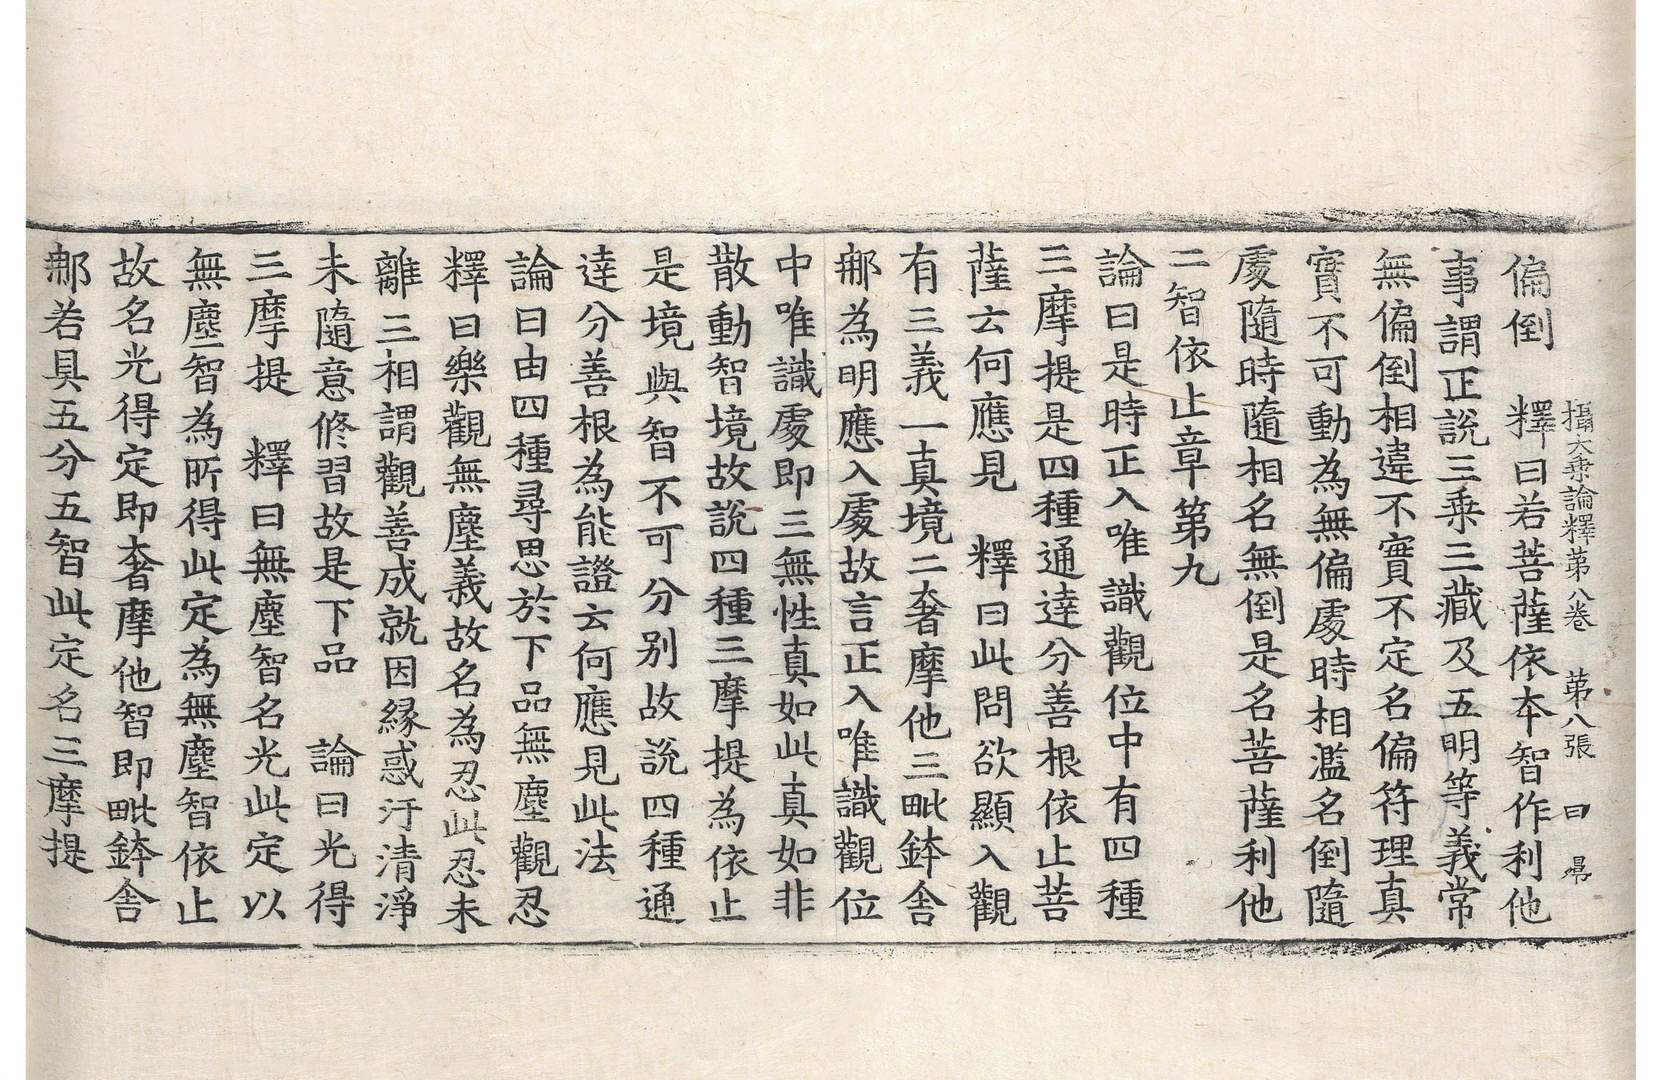 攝大乗論釋苐八卷　苐八張　曰
偏倒　釋曰若菩薩依本智作利他
事謂正說三乗三藏及五明等義常
無偏倒相違不實不定名偏符理真
實不可動為無偏處時相濫名倒隨
處隨時隨相名無倒是名菩薩利他
二智依止章第九
論曰是時正入唯識觀位中有四種
三摩提是四種通達分善根依止菩
薩云何應見　釋曰此問欲顯入觀
有三義一真境二奢摩他三毗鉢舍
那為明應入處故言正入唯識觀位
中唯識處即三無性真如此真如非
散動智境故說四種三摩提為依止
是境與智不可分别故說四種通
達分善根為能證云何應見此法
論曰由四種尋思於下品無塵觀忍
釋曰樂觀無塵義故名為忍此忍未
離三相謂觀善成就因縁惑汙清淨
未隨意修習故是下品　論曰光得
三摩提　釋曰無塵智名光此定以
無塵智為所得此定為無塵智依止
故名光得定即奢摩他智即毗鉢舍
那若具五分五智此定名三摩提